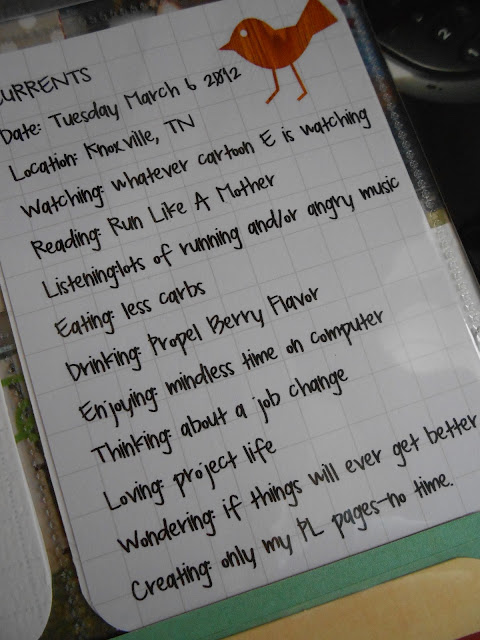 CURRENTS
Date: Tuesday March 6 2012
Location: Knoxville, TN
Watching: whatever cartoon E is watching
Reading: Run Like A Mother
Listening:lots of running and/or angry music
Eating: less carbs
Drinking: Propel Berry Flavor
Enjoying: mindless time on computer
Thinking: about a job change
Loving: project life
Wondering: if things will ever get better
Creating: only my PL pages-no time.
2